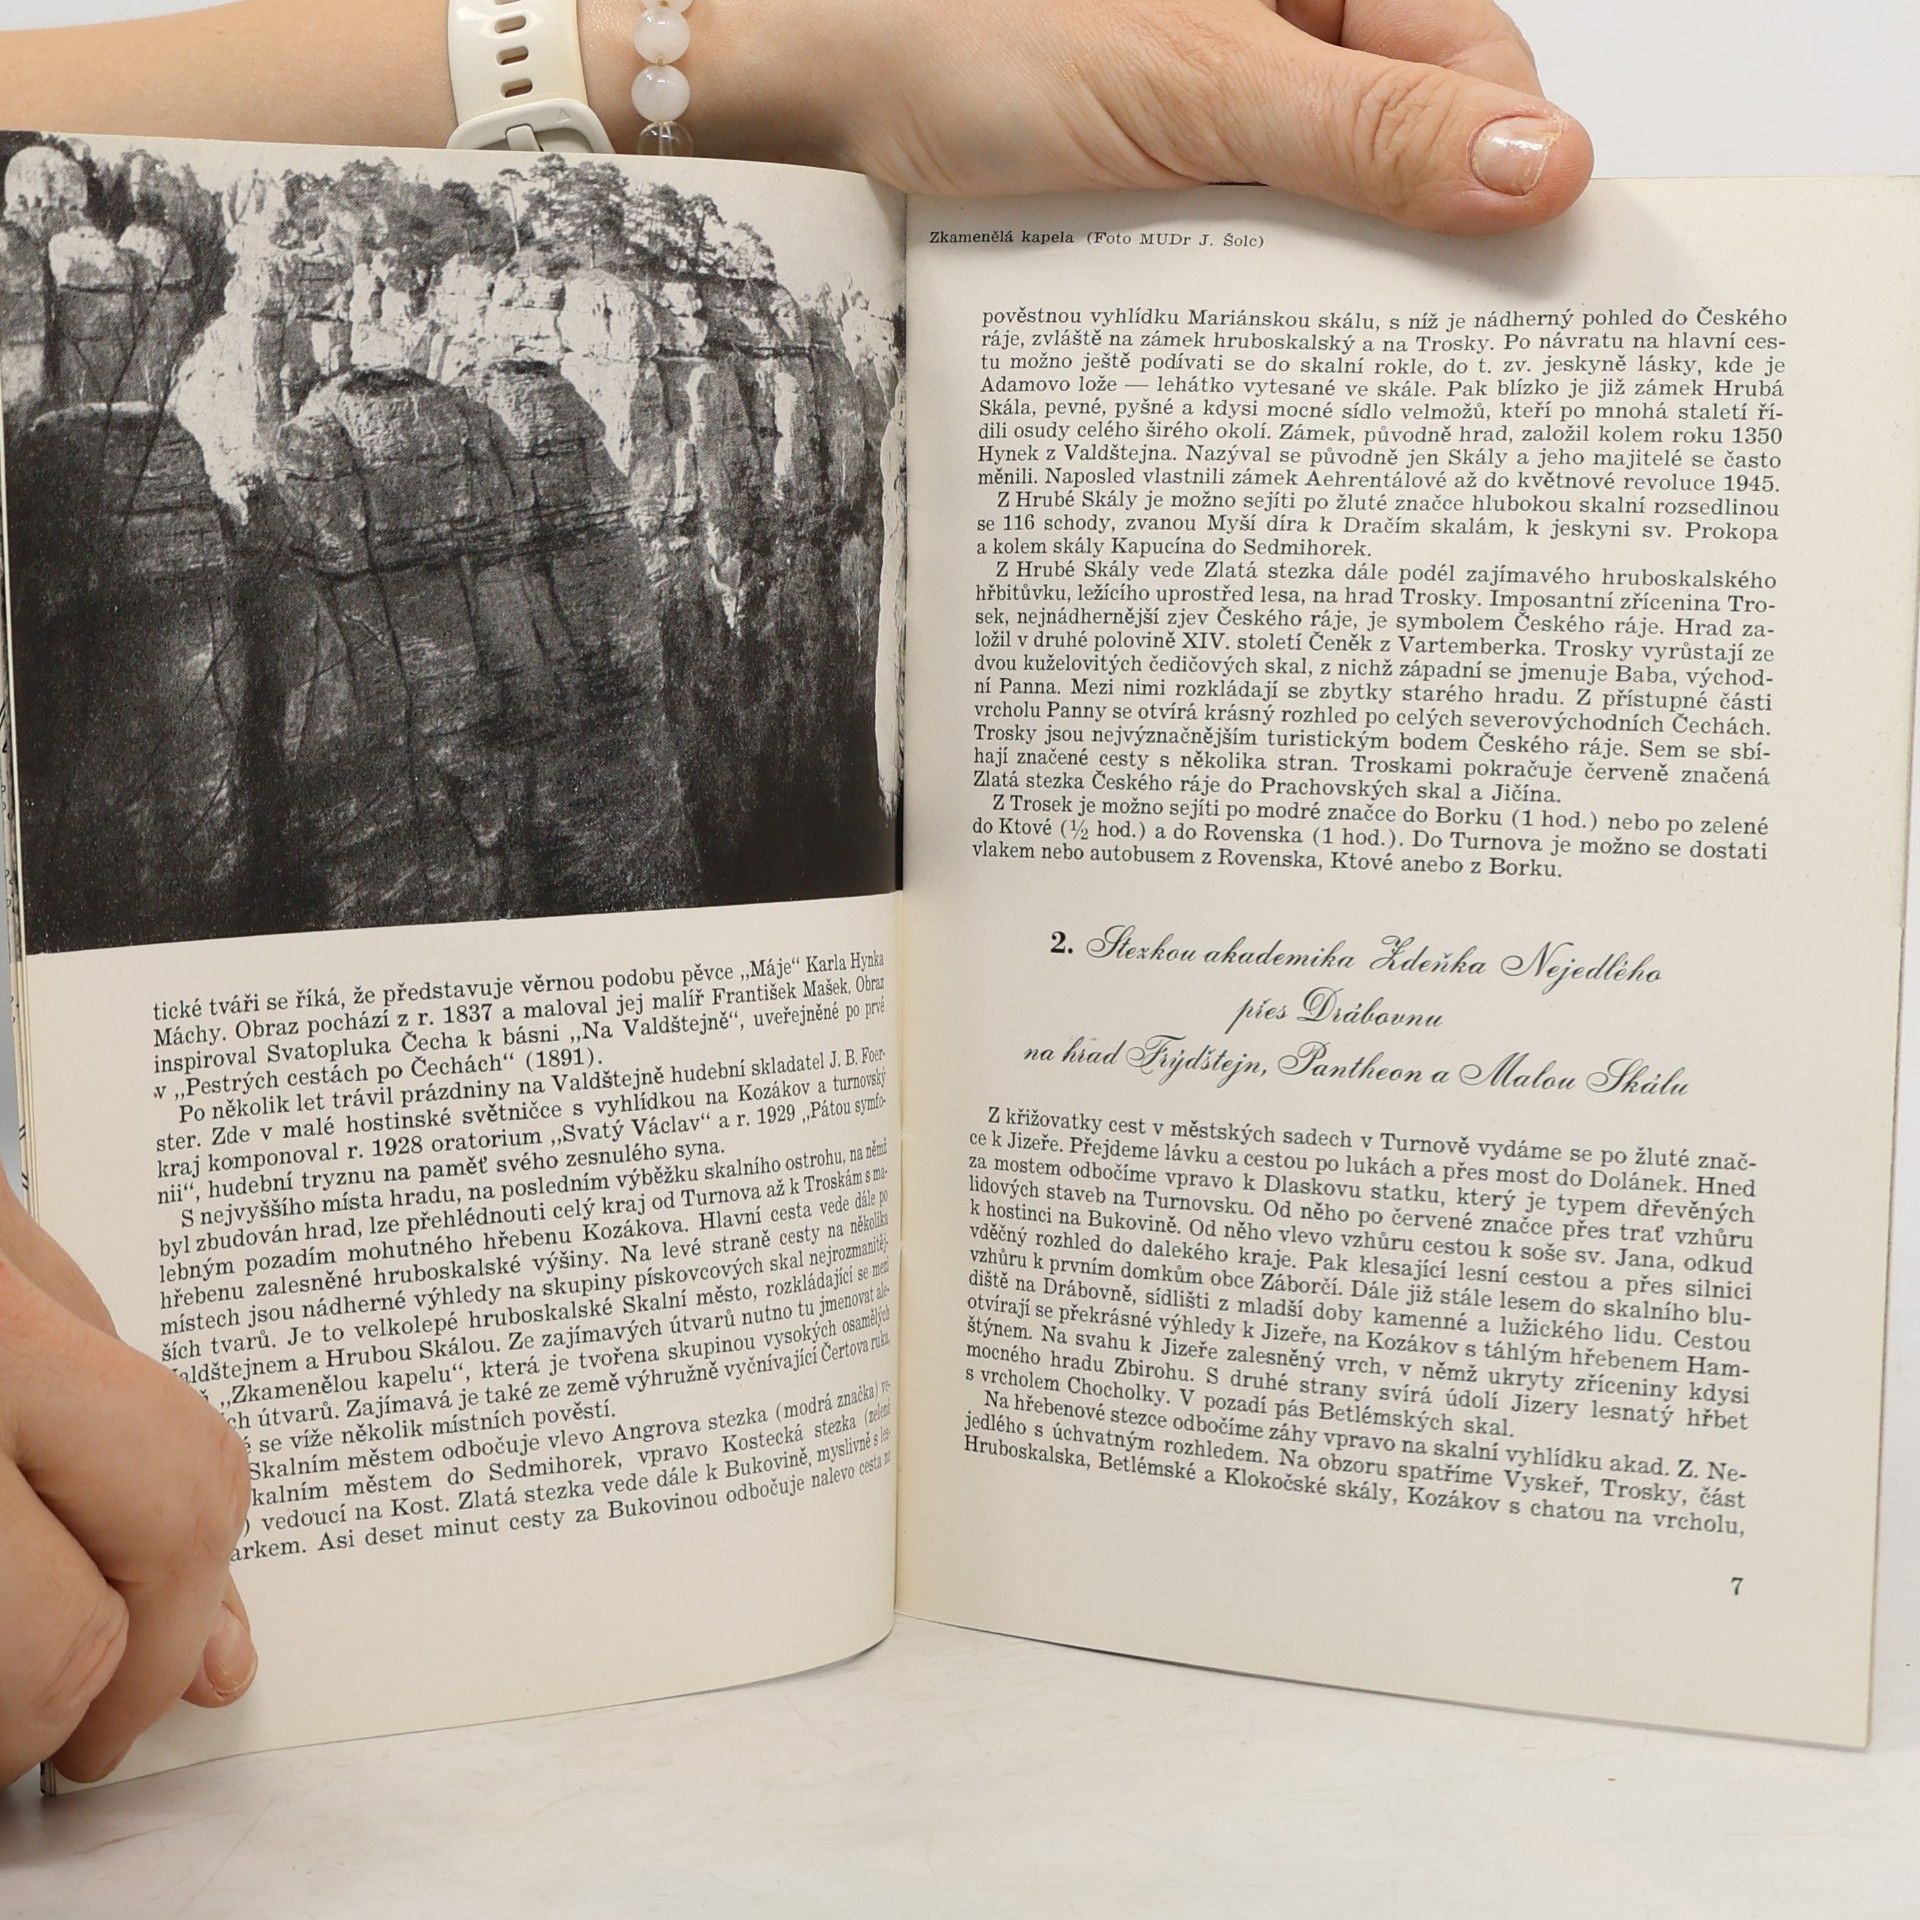 tické tváři se říká, že představuje věrnou podobu pěvce „Máje“ Karla Hynka
Máchy. Obraz pochází z r. 1837 a maloval jej malíř František Mašek. Obraz
inspiroval Svatopluka Čecha k básni „Na Valdštejně“, uveřejněné po prvé
v „Pestrých cestách po Čechách“ (1891).
Po několik let trávil prázdniny na Valdštejně hudební skladatel J. B. Foer-
ster. Zde v malé hostinské světničce s vyhlídkou na Kozákov a turnovský
kraj komponoval r. 1928 oratorium „Svatý Václav“ a r. 1929 „Pátou symfo-
nii“, hudební tryznu na paměť svého zesnulého syna.
S nejvyššího místa hradu, na posledním výběžku skalního ostrohu, na němž
byl zbudován hrad, lze přehlédnouti celý kraj od Turnova až k Troskám s ma-
lebným pozadím mohutného hřebenu Kozákova. Hlavní cesta vede dále po
hřebenu zalesněné hruboskalské výšiny. Na levé straně cesty na několika
místech jsou nádherné výhledy na skupiny pískovcových skal nejrozmanitěj-
ších tvarů. Je to velkolepé hruboskalské Skalní město, rozkládající se mezi
Valdštejnem a Hrubou Skálou. Ze zajímavých útvarů nutno tu jmenovat ale-
„Zkamenělou kapelu“, která je tvořena skupinou vysokých osamělých
útvarů. Zajímavá je také ze země výhružně vyčnívající Čertova ruka,
se víže několik místních pověstí.
Skalním městem odbočuje vlevo Angrova stezka (modrá značka) ve-
městem do Sedmihorek, vpravo Kostecká stezka (zelená
) vedoucí na Kost. Zlatá stezka vede dále k Bukovině, myslivně s les-
Asi deset minut cesty za Bukovinou odbočuje nalevo cesta na
Zkamenělá kapela (Foto MUDr J. Šolc)
pověstnou vyhlídku Mariánskou skálu, s níž je nádherný pohled do Českého
ráje, zvláště na zámek hruboskalský a na Trosky. Po návratu na hlavní ces-
tu možno ještě podívati se do skalní rokle, do t. zv. jeskyně lásky, kde je
Adamovo lože — lehátko vytesané ve skále. Pak blízko je již zámek Hrubá
Skála, pevné, pyšné a kdysi mocné sídlo velmožů, kteří po mnohá staletí ří-
dili osudy celého širého okolí. Zámek, původně hrad, založil kolem roku 1350
Hynek z Valdštejna. Nazýval se původně jen Skály a jeho majitelé se často
měnili. Naposled vlastnili zámek Aehrentálové až do květnové revoluce 1945.
Z Hrubé Skály je možno sejíti po žluté značce hlubokou skalní rozsedlinou
se 116 schody, zvanou Myší díra k Dračím skalám, k jeskyni sv. Prokopa
a kolem skály Kapucína do Sedmihorek.
Z Hrubé Skály vede Zlatá stezka dále podél zajímavého hruboskalského
hřbitůvku, ležícího uprostřed lesa, na hrad Trosky. Imposantní zřícenina Tro-
sek, nejnádhernější zjev Českého ráje, je symbolem Českého ráje. Hrad za-
ložil v druhé polovině XIV. století Čeněk z Vartemberka. Trosky vyrůstají ze
dvou kuželovitých čedičových skal, z nichž západní se jmenuje Baba, východ-
ní Panna. Mezi nimi rozkládají se zbytky starého hradu. Z přístupné části
vrcholu Panny se otvírá krásný rozhled po celých severovýchodních Čechách.
Trosky jsou nejvýznačnějším turistickým bodem Českého ráje. Sem se sbí-
hají značené cesty s několika stran. Troskami pokračuje červeně značená
Zlatá stezka Českého ráje do Prachovských skal a Jičína.
Z Trosek je možno sejíti po modré značce do Borku (1 hod.) nebo po zelené
do Ktové (½ hod.) a do Rovenska (1 hod.). Do Turnova je možno se dostati
vlakem nebo autobusem z Rovenska, Ktové anebo z Borku.
2. Stezkou akademika Zdeňka Nejedlého
přes Drábovnu
na hrad Frýdštejn, Pantheon a Malou Skálu
Z křižovatky cest v městských sadech v Turnově vydáme se po žluté znač-
ce k Jizeře. Přejdeme lávku a cestou po lukách a přes most do Dolánek. Hned
za mostem odbočíme vpravo k Dlaskovu statku, který je typem dřevěných
lidových staveb na Turnovsku. Od něho po červené značce přes trať vzhůru
k hostinci na Bukovině. Od něho vlevo vzhůru cestou k soše sv. Jana, odkud
vděčný rozhled do dalekého kraje. Pak klesající lesní cestou a přes silnici
vzhůru k prvním domkům obce Záborčí. Dále již stále lesem do skalního blu-
diště na Drábovně, sídlišti z mladší doby kamenné a lužického lidu. Cestou
otvírají se překrásné výhledy k Jizeře, na Kozákov s táhlým hřebenem Ham-
štýnem. Na svahu k Jizeře zalesněný vrch, v němž ukryty zříceniny kdysi
mocného hradu Zbirohu. S druhé strany svírá údolí Jizery lesnatý hřbet
s vrcholem Chocholky. V pozadí pás Betlémských skal.
Na hřebenové stezce odbočíme záhy vpravo na skalní vyhlídku akad. Z. Ne-
jedlého s úchvatným rozhledem. Na obzoru spatříme Vyskeř, Trosky, část
Hruboskalska, Betlémské a Klokočské skály, Kozákov s chatou na vrcholu,
7